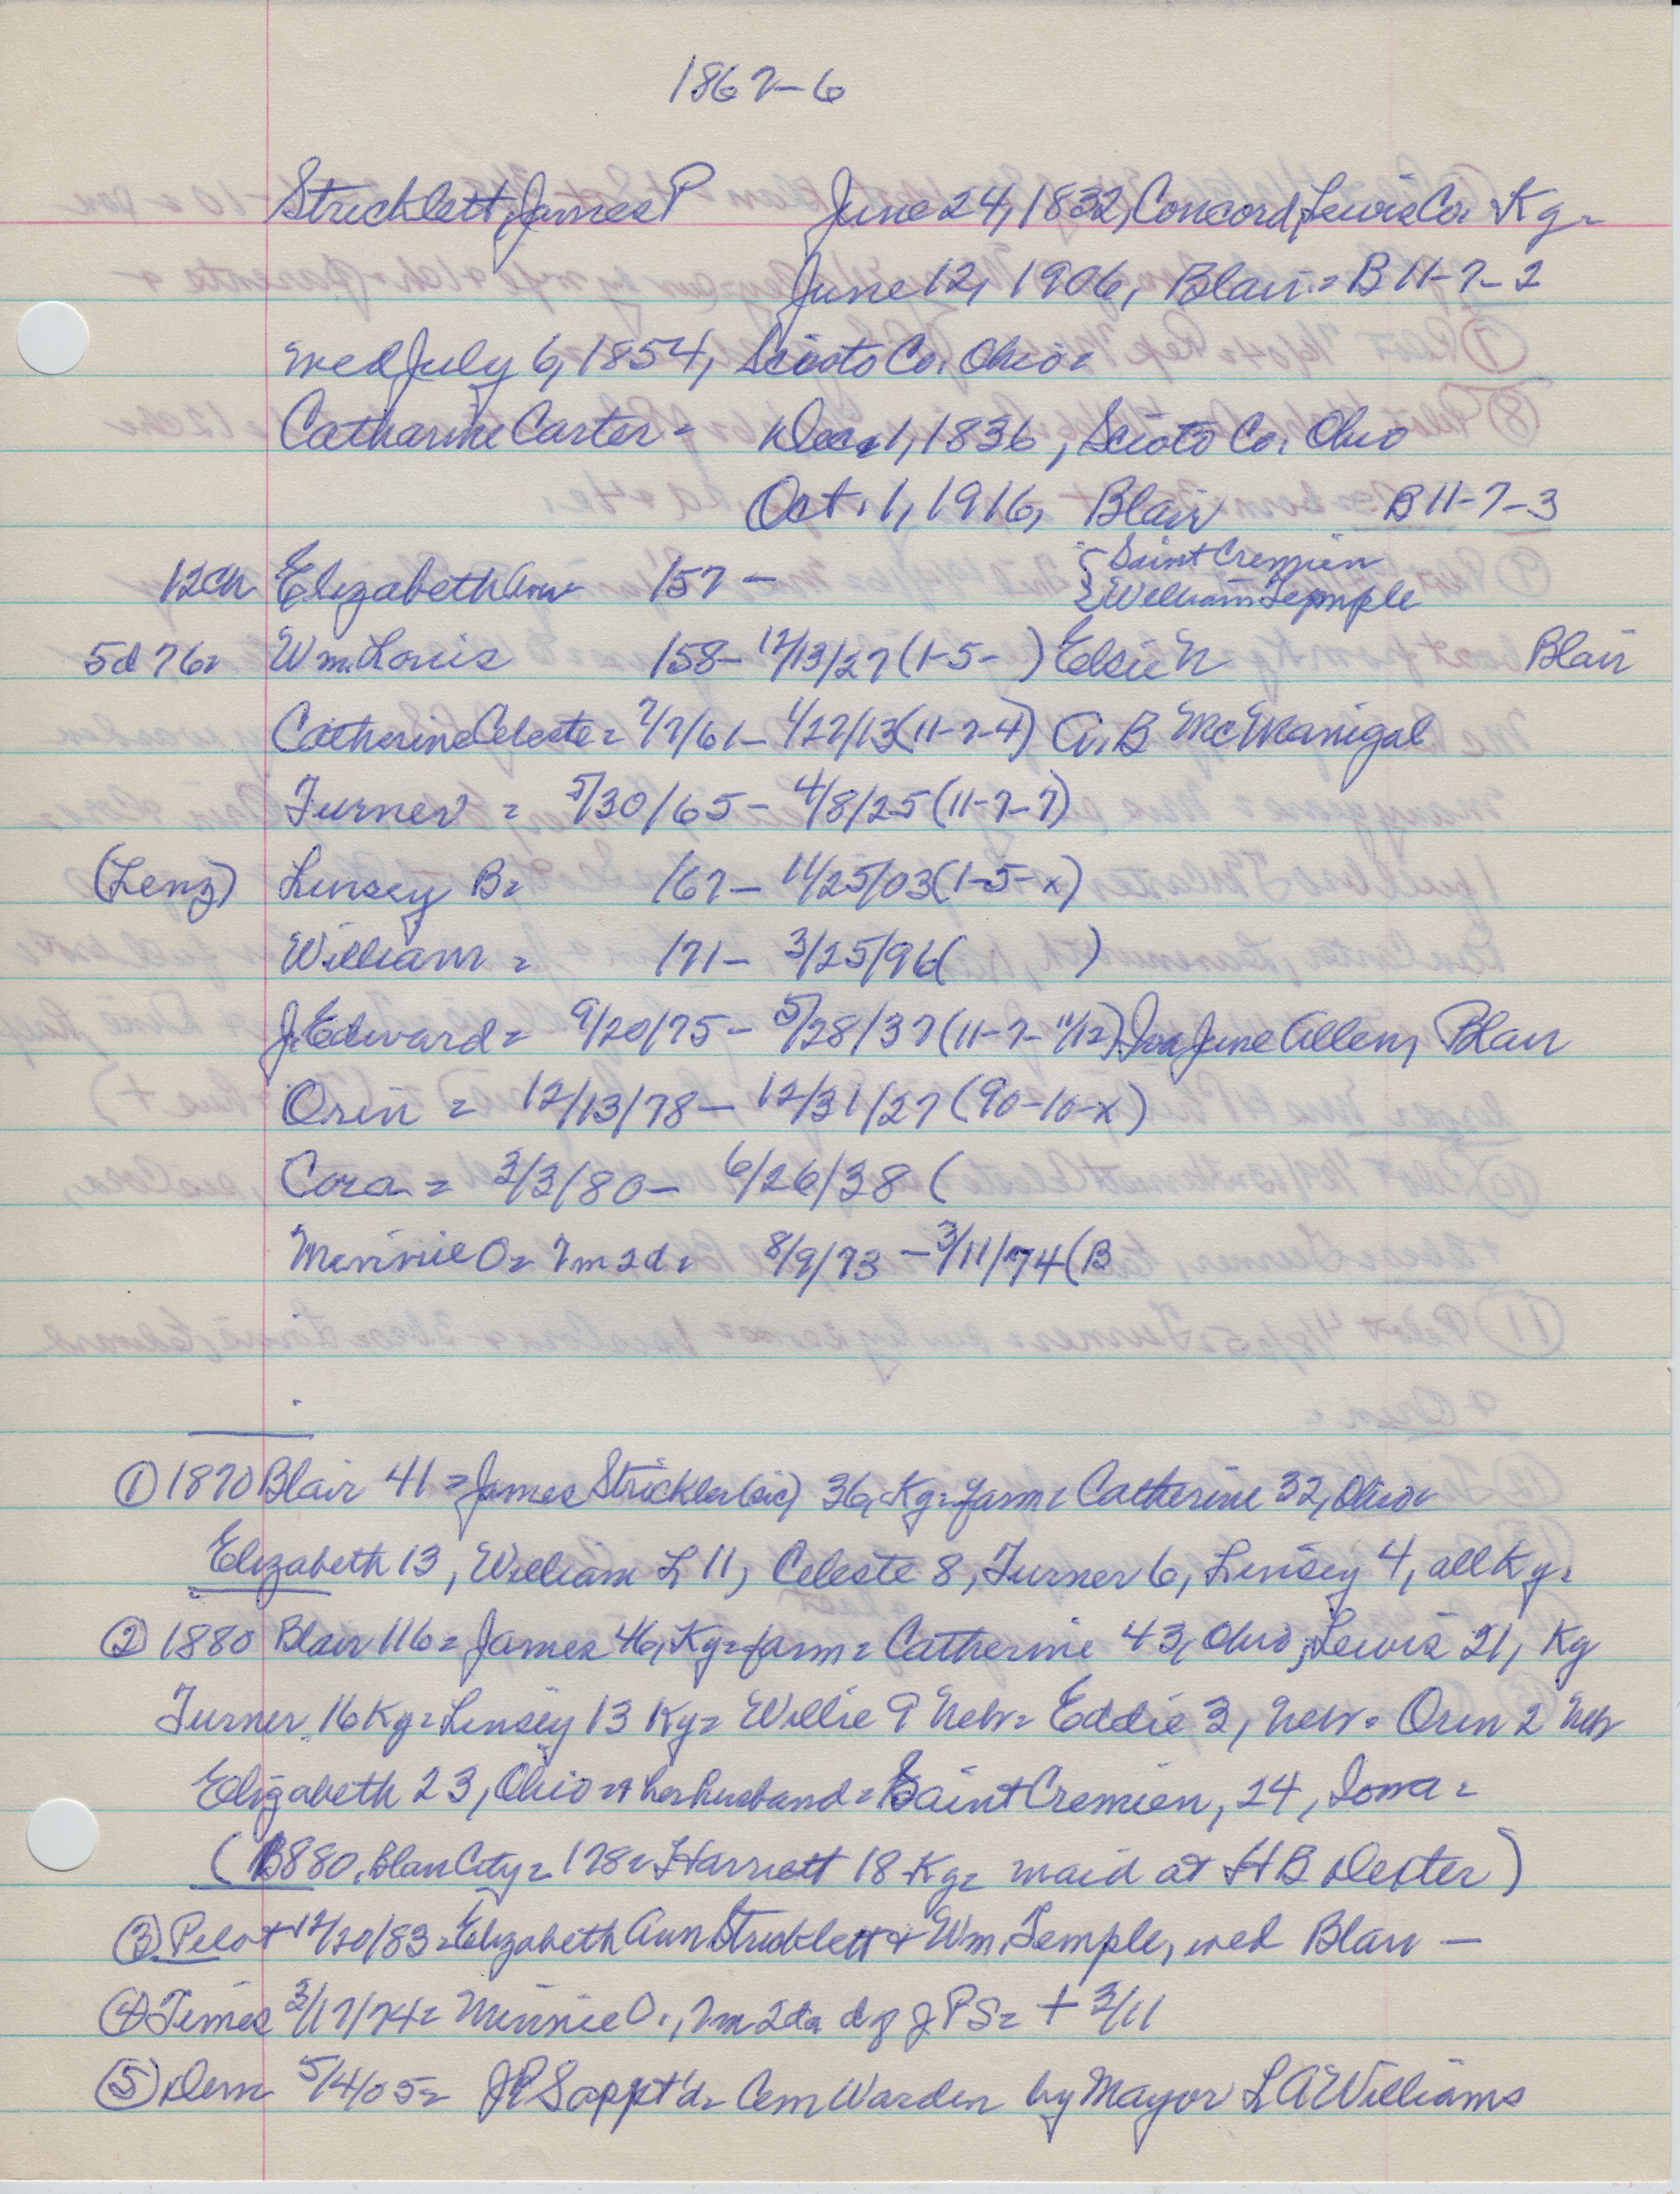 1867-6
Stricklett, James P June 24, 1832, Concord, Lewis Co. Ky =
June 12, 1906, Blair = B 11-7-2
wed July 6, 1854, Scioto Co. Ohio =
Catharine Carter = Dec. 1, 1836, Scioto Co, Ohio
Oct. 1, 1916, Blair B 11-7-3
{ Saint Cremien
12 ch Elizabeth Ann /57 - { William Temple
5d 76 = Wm. Louis /58 - 12/13/27 (1-5- ) Elsie N Blair
Catherine Celeste = 7/7/61 - 1/27/13 (11-7-4) A. B McManigal
Turner = 5/30/65 - 4/8/25 (11-7-7)
(Lenz) Linsey B = /67 - 11/25/03 (1-5-x)
William = /71 - 3/25/96 ( )
J. Edward = 9/20/75 - 5/28/37 (11-7-11/12) Iva June Allen, Blair
Orin = 12/13/78 - 12/31/27 (90-10-x)
Cora = 3/3/80 - 6/26/38 (
Minnie O = 7m 2d = 8/9/73 - 3/11/74 (B
① 1870 Blair 41 = James Strickler (sic) 36, Ky = farm = Catherine 32, Ohio =
Elizabeth 13, William L 11, Celeste 8, Turner 6, Linsey 4, all Ky =
② 1880 Blair 116 = James 46, Ky = farm = Catherine 43, Ohio; Lewis 21, Ky
Turner 16 Ky = Linsey 13 Ky = Willie 9 Nebr = Eddie 3, Nebr = Orin 2 Nebr
Elizabeth 23, Ohio = + her husband = Saint Cremien, 24, Iowa =
(1880, Blair City = 178 = Harriett 18 Ky = maid at H B Dexter)
③ Pilot 12/20/83 = Elizabeth Ann Stricklett + Wm. Temple, wed Blair -
④ Times 3/17/74 = Minnie O., 7m 2da d of J P S = + 3/11
⑤ Dem 5/4/05 = J P S appt'd = Cem Warden by Mayor L A Williams